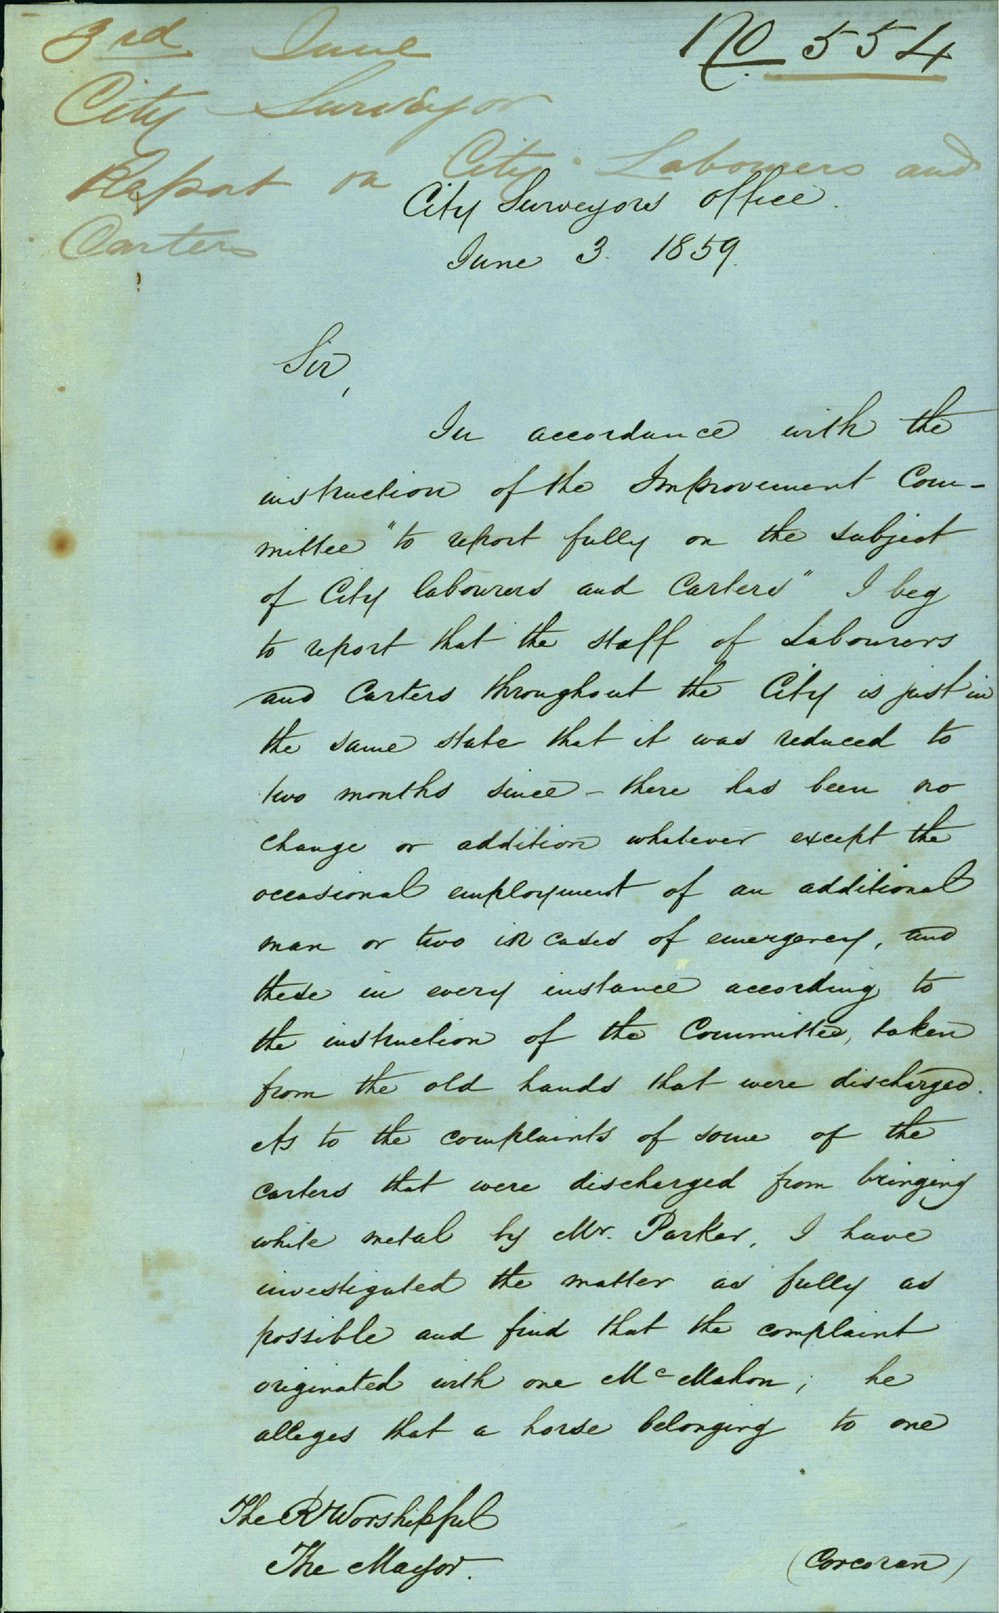 3rd June
No 554
City Surveyor
Report on City Labourers and
Carters
City Surveyors Office.
June 3. 1859.
Sir,
In accordance with the
instruction of the Improvement Com-
mittee "to report fully on the subject
of City labourers and Carters" I beg
to report that the staff of Labourers
and Carters throughout the City is just in
the same state that it was reduced to
two months since - there has been no
change or addition whatever except the
occasional employment of an additional
man or two in cases of emergency, and
these in every instance according to
the instruction of the Committee, taken
from the old hands that were discharged.
As to the complaints of some of the
carters that were discharged from bringing
white metal by Mr. Parker, I have
investigated the matter as fully as
possible and find that the complaint
originated with one Mc Mahon; he
alleges that a horse belonging to one
The Rt Worshipful
The Mayor.
(Corcoran)